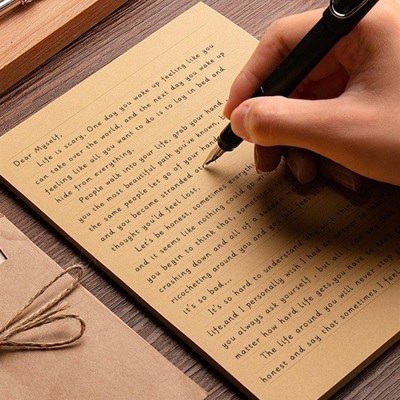 Dear Myself,
Life is scary. One day you wake up feeling like you
can take over the world, and the next day you wake up
feeling like all you want to do is to lay in bed and
hide from everything.
People walk into your life, grab your hand
you the most beautiful path you've known,
the same people let go of your hand
and you become stranded
thought you'd feel lost.
Let's be honest, sometimes everyth
and it seems like nothing could go
you begin to think that, sometimes
crashing down and all of a
ricocheting around you and
it's so bad...
It's so hard to understand
life, and I personally wish I had
you always ask yourself, but all
matter how hard life gets, you have
The life around you will never stop
honest and say that sometimes I feel